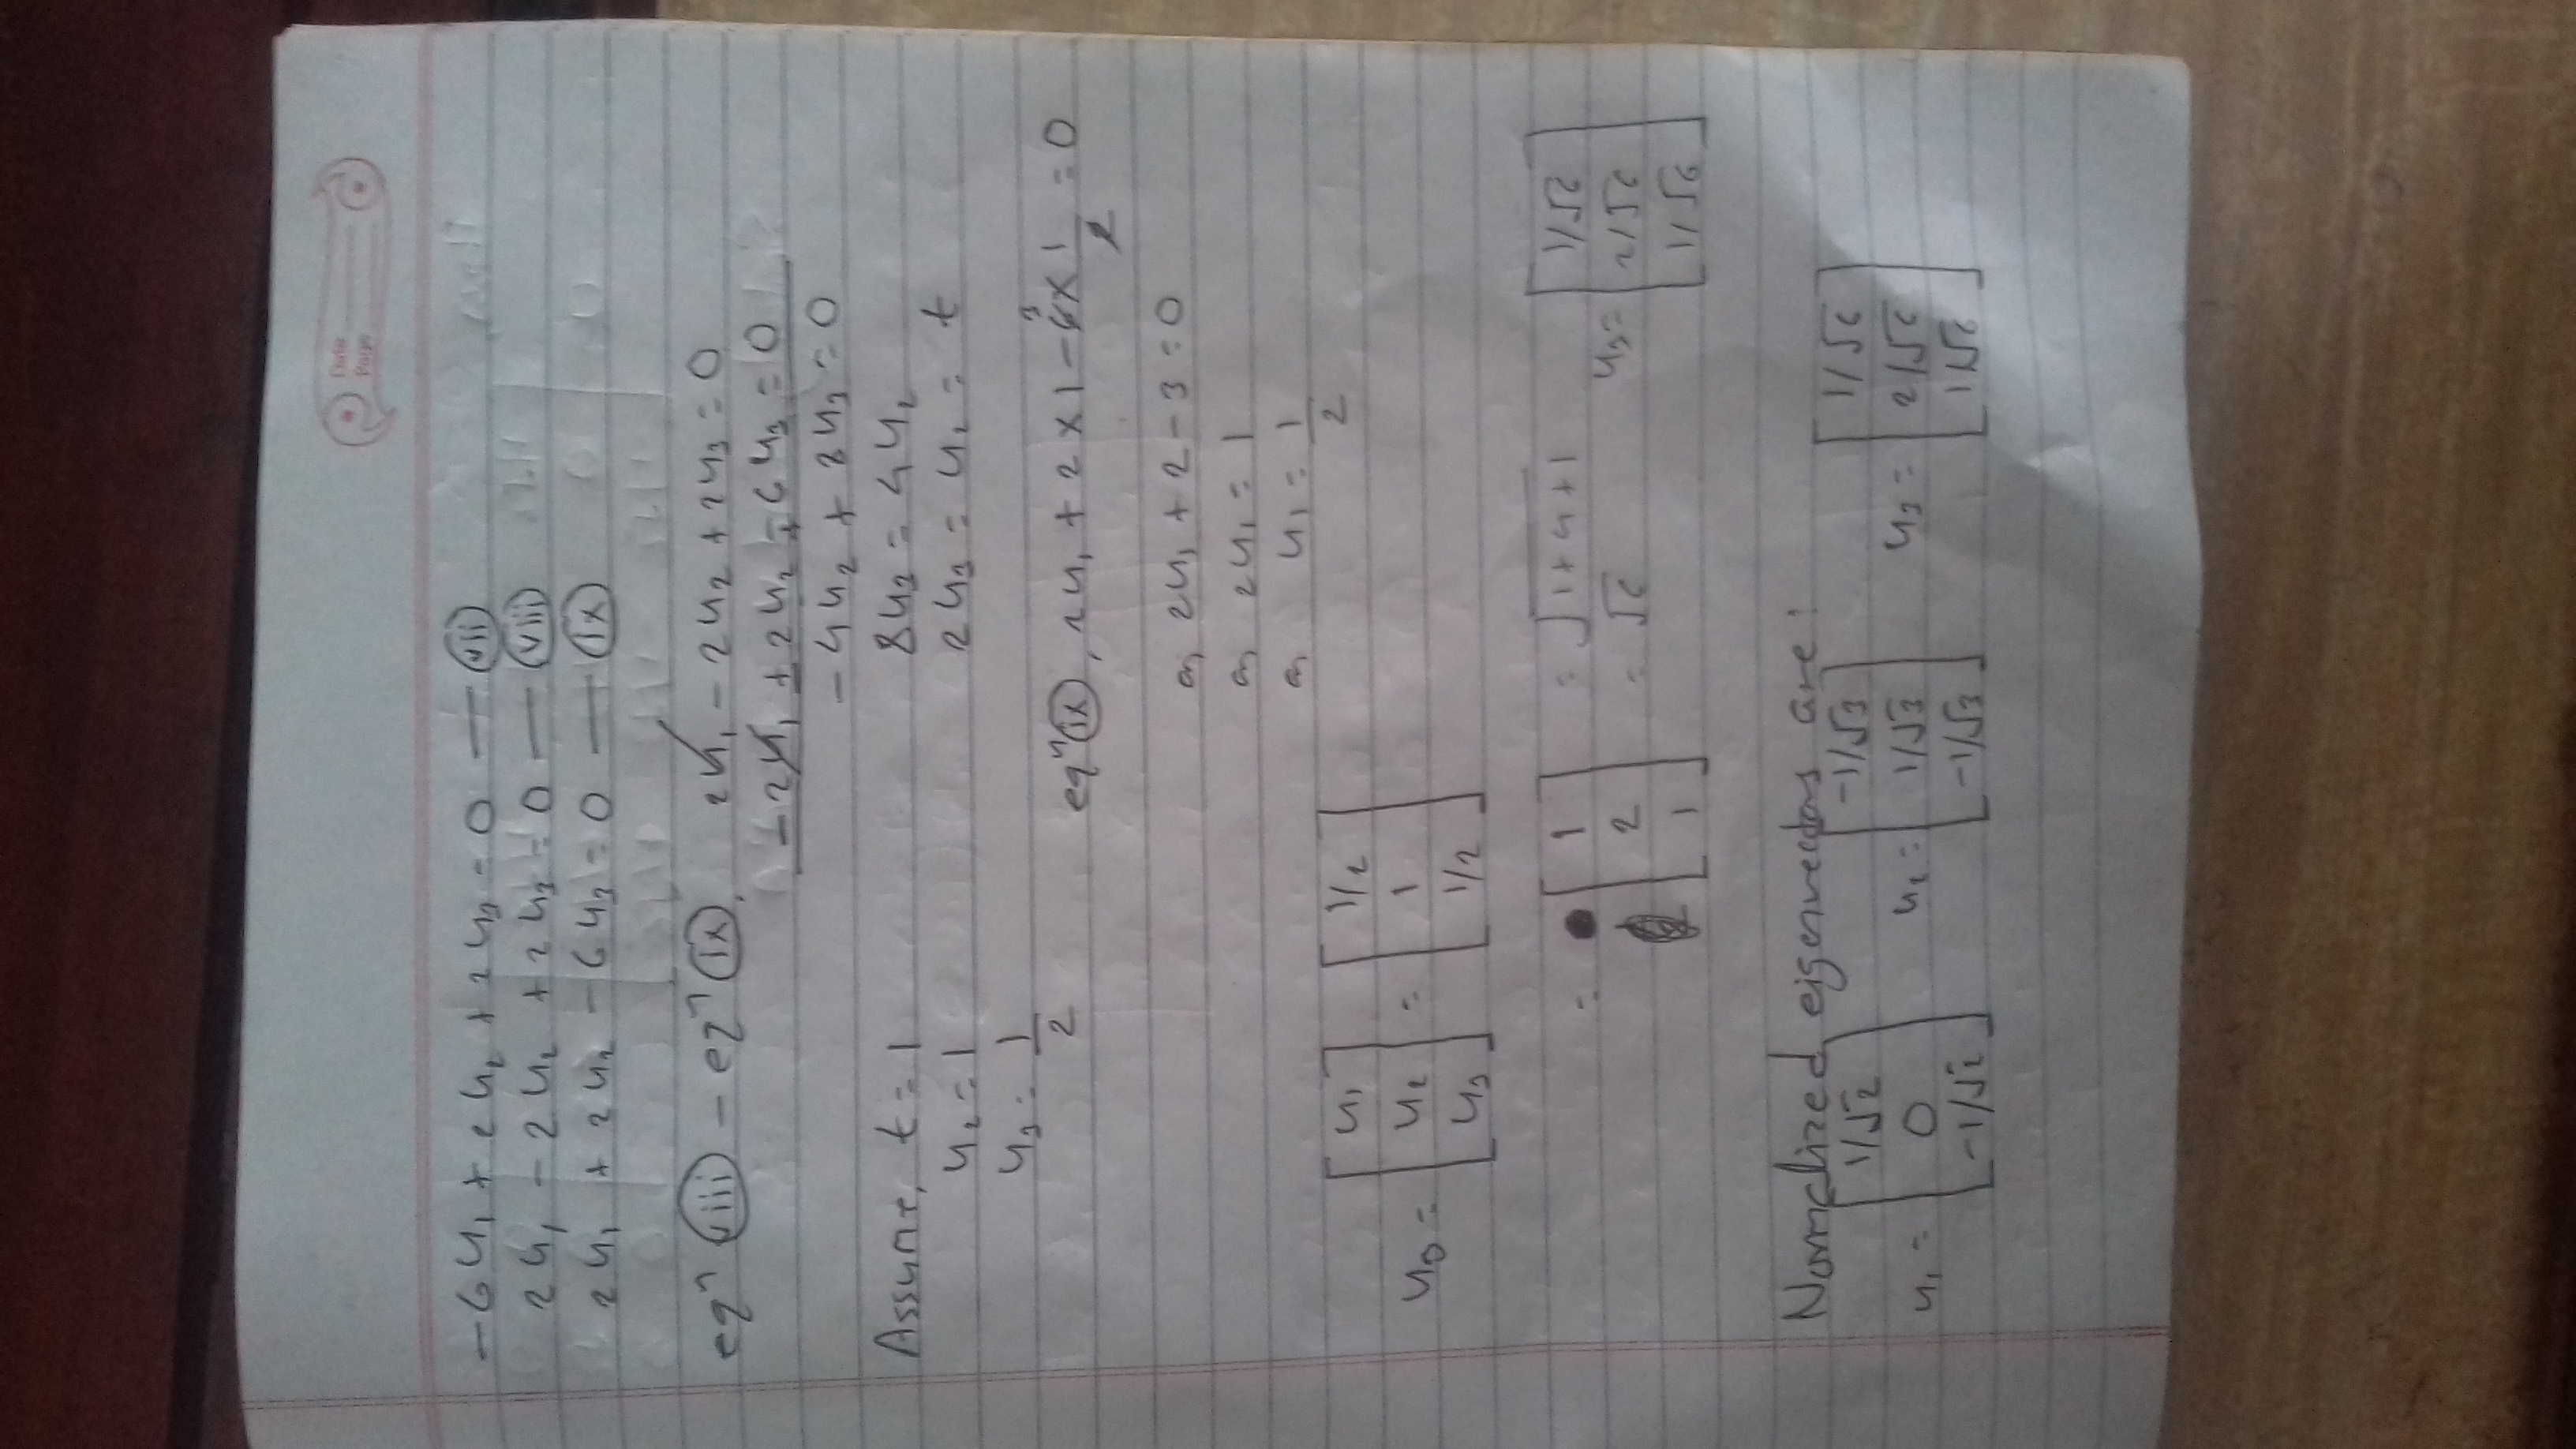 Date
Page
-6u₁ + 2u₂ + 2u₃ = 0 — (vii)
2u₁ - 2u₂ + 2u₃ = 0 — (viii)
2u₁ + 2u₂ - 6u₃ = 0 — (ix)
eqⁿ (viii) - eqⁿ (ix), 2u₁ - 2u₂ + 2u₃ = 0
- 2u₁ ± 2u₂ ∓ 6u₃ = 0
-4u₂ + 8u₃ = 0
Assume, t = 1 8u₃ = 4u₂
u₂ = 1 2u₃ = u₂ = t
u₃ = 1/2
eqⁿ (ix), 2u₁ + 2 × 1 - 6 3 × 1/2 = 0
or, 2u₁ + 2 - 3 = 0
or, 2u₁ = 1
or, u₁ = 1/2
u₃ = [u₁ u₂ u₃] = [1/2 1 1/2]
= [1 2 1] = √1+4+1 = √6 u₃ = [1/√6 2/√6 1/√6]
Normalized eigenvectors are:
u₁ = [1/√2 0 -1/√2] u₂ = [-1/√3 1/√3 -1/√3] u₃ = [1/√6 2/√6 1/√6]